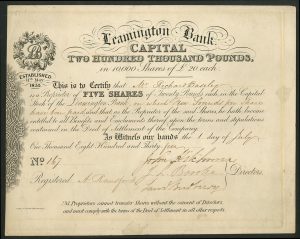 Leamington Bank.
CAPITAL
TWO HUNDRED THOUSAND POUNDS,
in 10,000 Shares of £20 each.
ESTABLISHED
1835
This is to Certify that Mr. Richard
is a Proprietor of FIVE SHARES of Twenty Pounds each in the Capital
Stock of the Leamington Bank, on which Ten Pounds per Share
have been paid and that as the Proprietor of the said Shares he hath become
entitled to all Benefits and Emoluments thereof upon the terms and stipulations
contained in the Deed of Settlement of the Company.
As Witness our hands this 1 day of July
One Thousand Eight Hundred and Thirty
No. 167
Directors.
Registered
N.B. Proprietors cannot transfer Shares without the consent of Directors,
and must comply with the terms of the Deed of Settlement in all other respects.